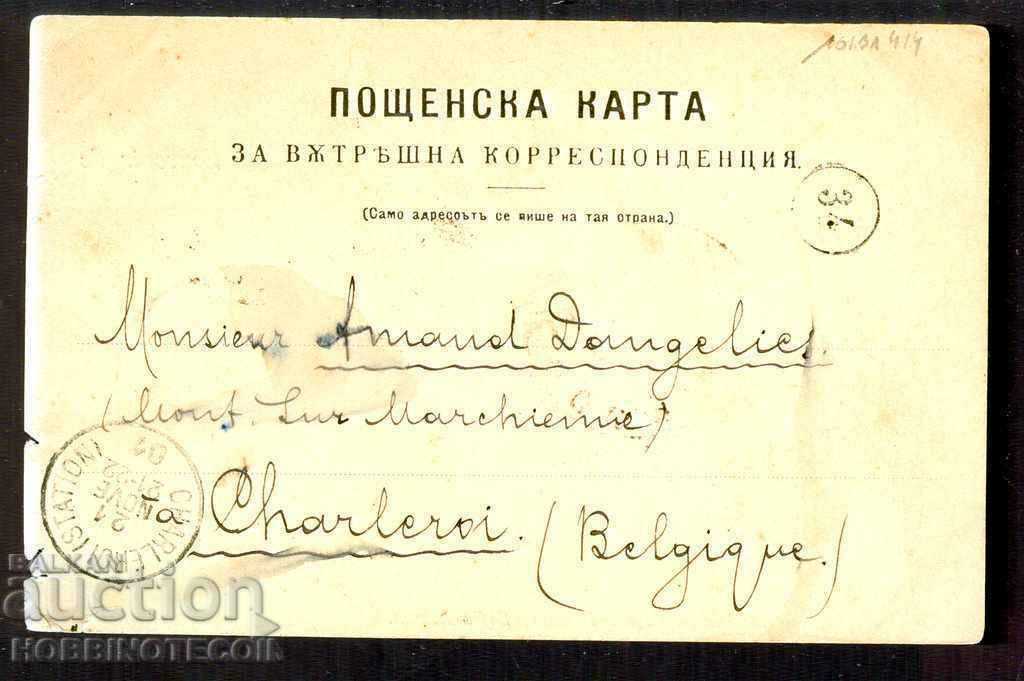 ПОЩЕНСКА КАРТА
ЗА ВѪТРѢШНА КОРРЕСПОНДЕНЦИЯ.
(Само адресоътъ се пише на тая страна.)
34
Monsieur Amand Dangelies.
(Mont. Sur Marchienne)
à Charleroi. (Belgique.)
CHARLEROI (STATION)
21
NOVE
01
BALKAN
auction
HOBBINOTECOIN